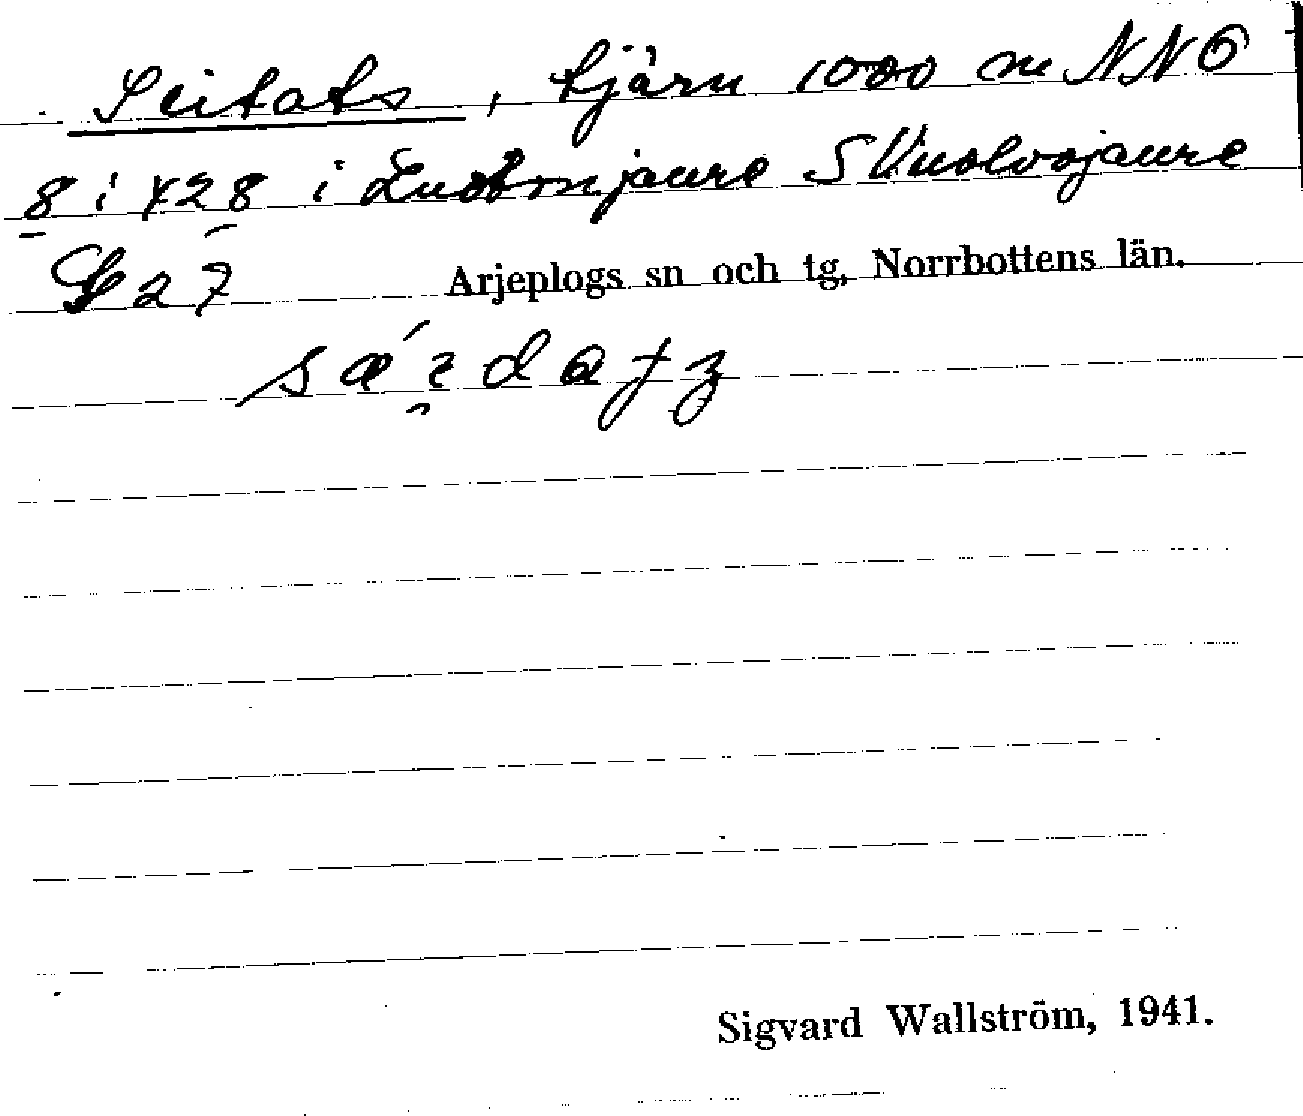 Seitats, tjärn 1000 m NNO
8 i 428 i Luobmjaure S Vuolvojaure
27 Arjeplogs sn och tg, Norrbottens län.
Sigvard Wallström, 1941.